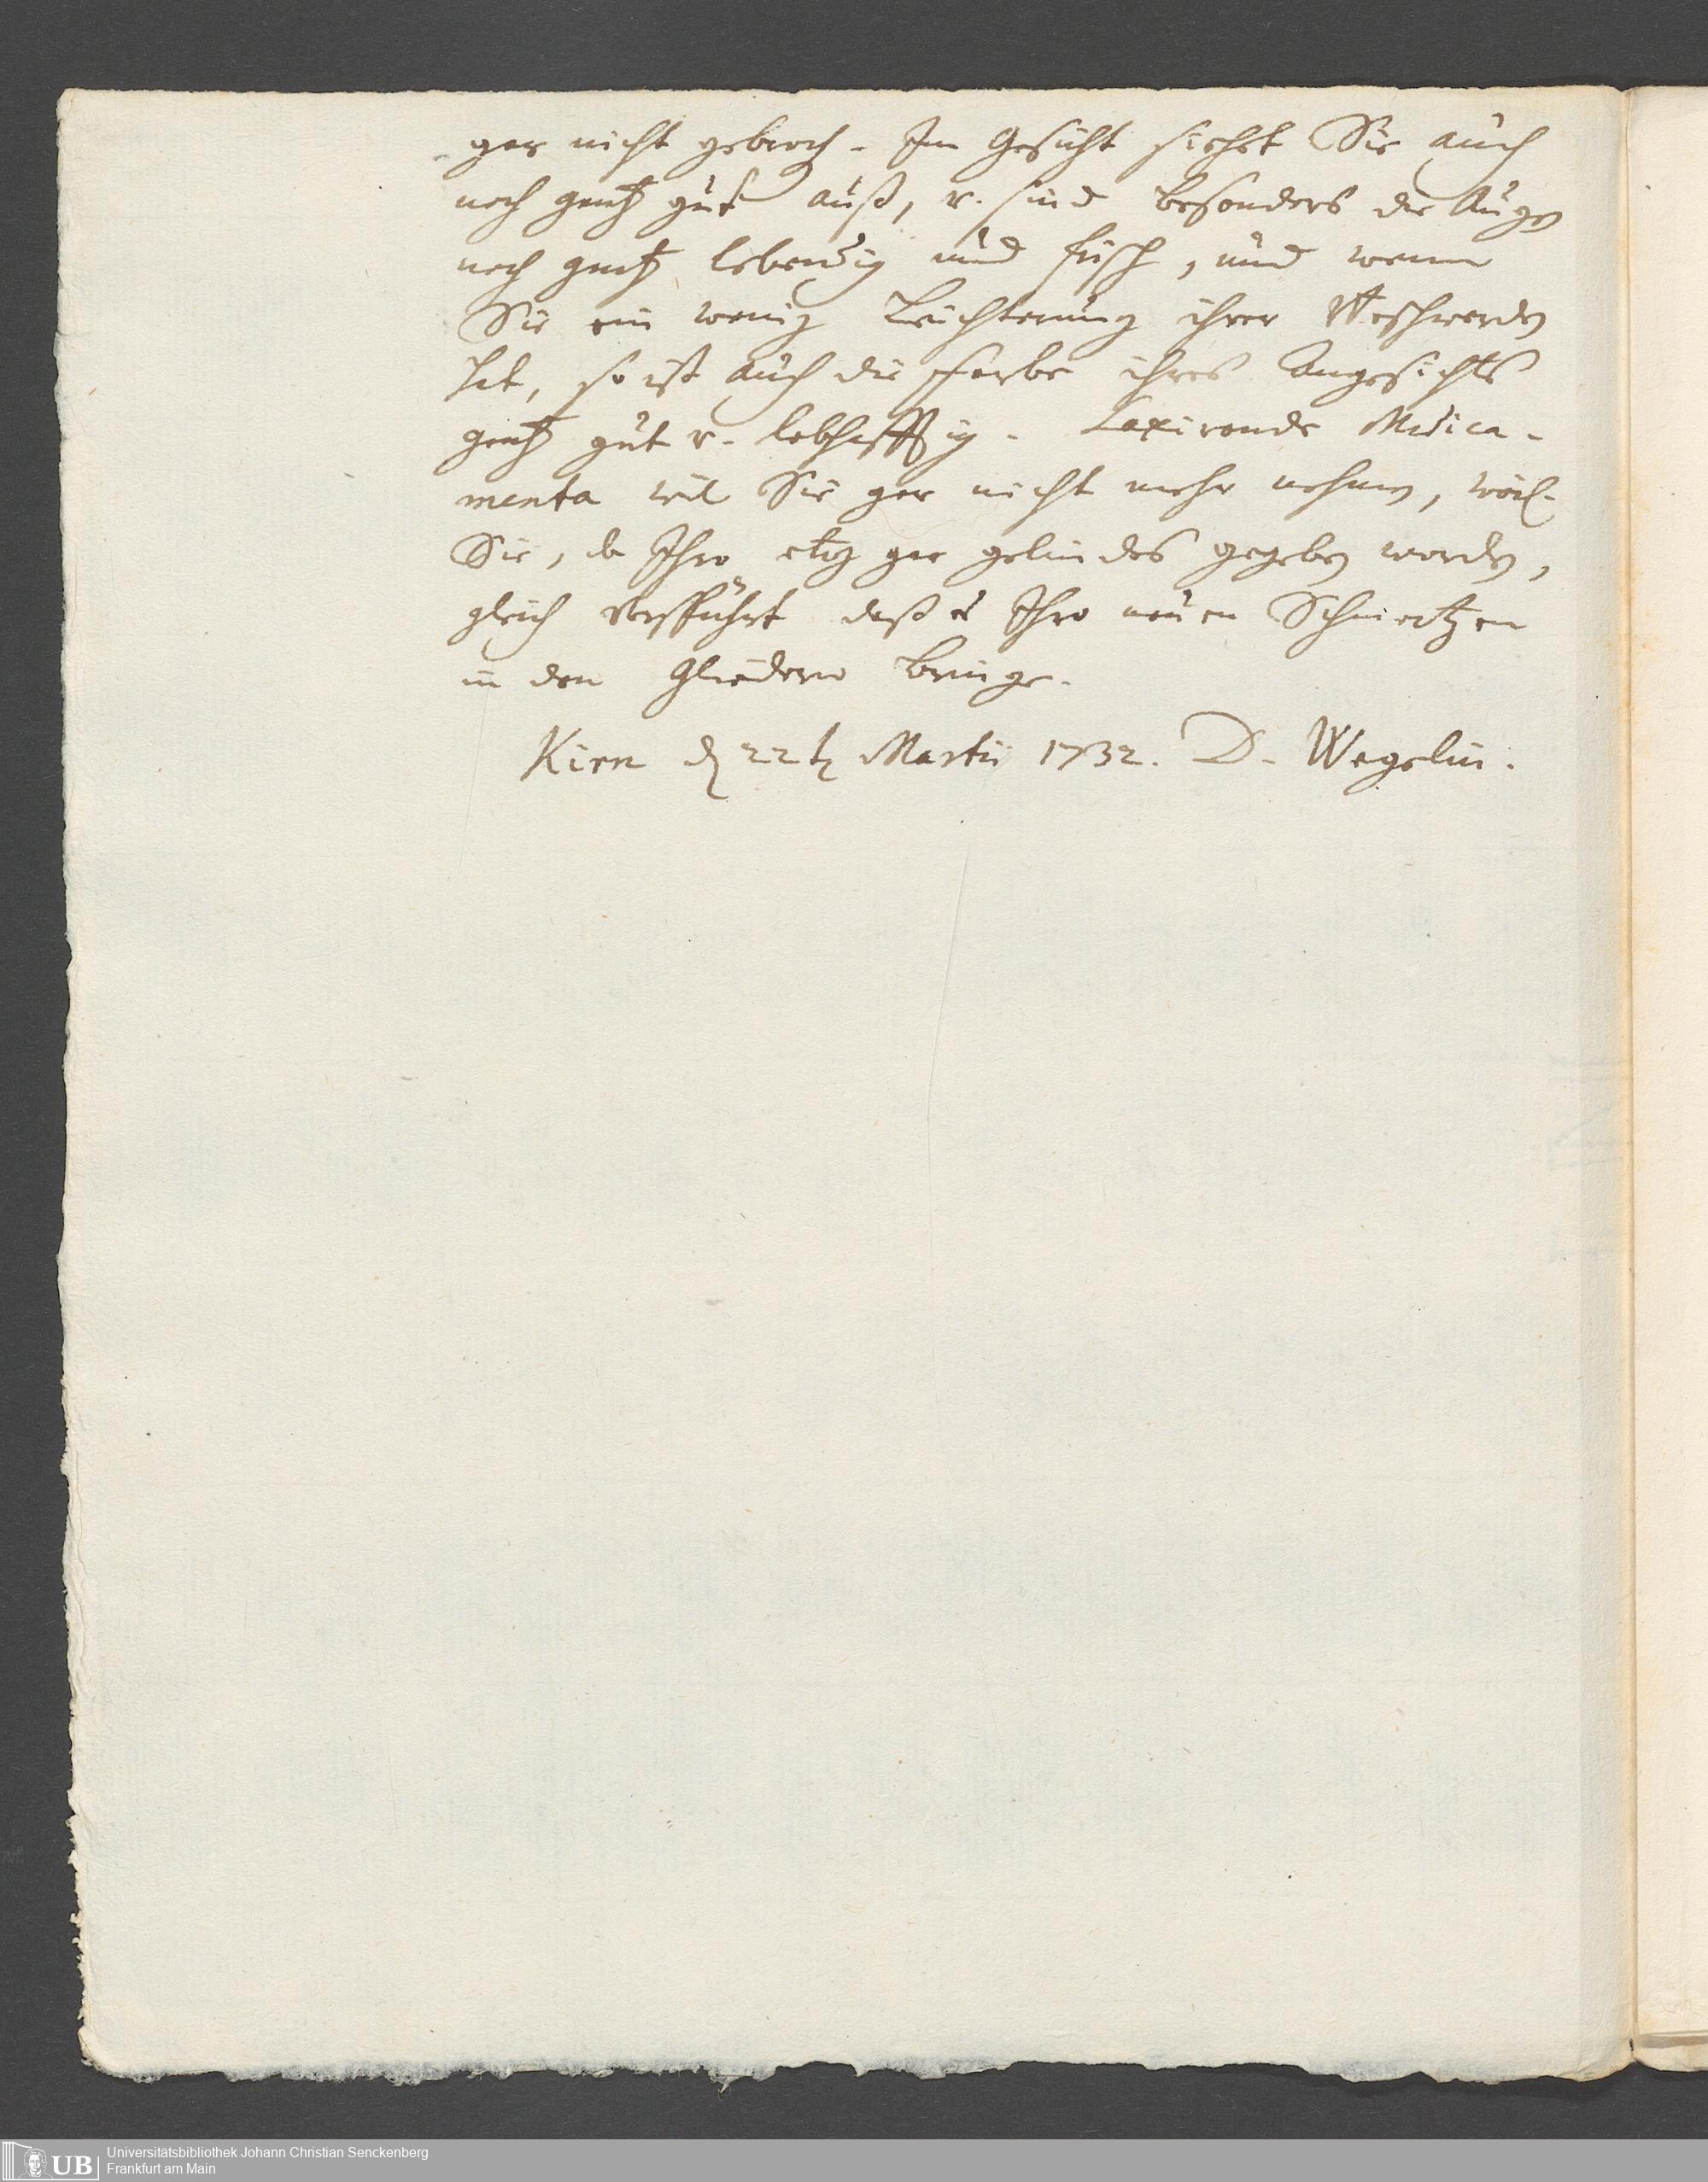 gar nicht gebroch. Im Gesicht siehet Sie auch
noch gantz gut auß, v. sind besonders die Augen
noch gantz lebendig und frisch, und wenn
Sie ein wenig Leichterung ihrer Beschwerden
hat, so ist auch die Farbe ihres Angesichts
gantz gut v. lebhafftig. Laxirende Medica-
menta wil Sie gar nicht mehr nehmen, weil
Sie, da Ihro etwz gar gelindes gegeben worden,
gleich verspührt daß es Ihro neuen Schmertzen
in den Gliedern bringe.
Kirn d 22t Martii 1732. D. Wegelin.
UB Universitätsbibliothek Johann Christian Senckenberg
Frankfurt am Main